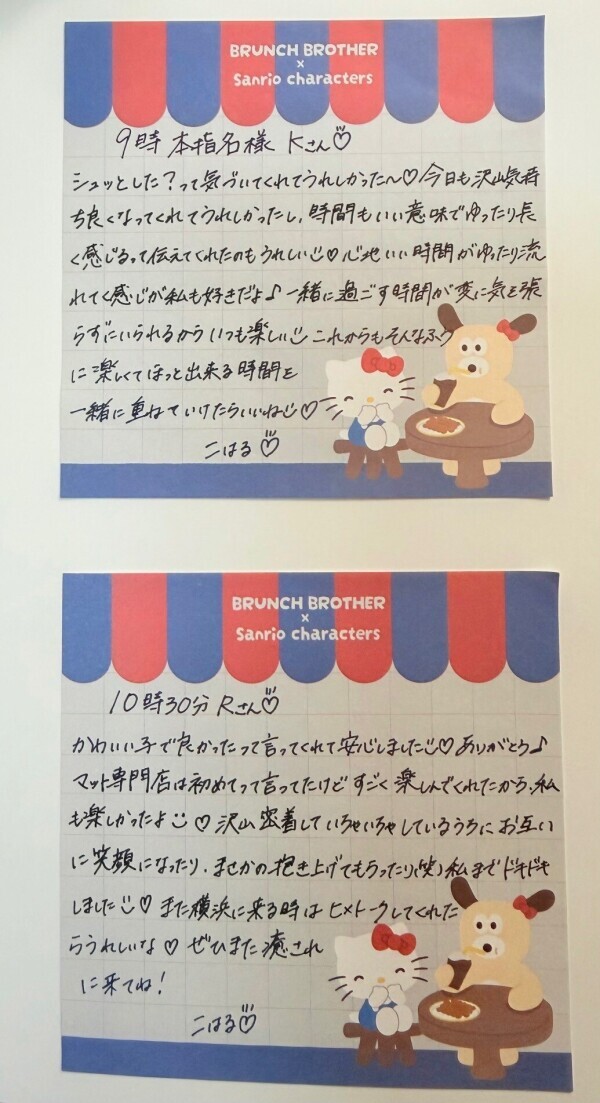 BRUNCH BROTHER
×
Sanrio characters
9時 本指名様 Kさん♡
シュッとした?って気づいてくれてうれしかった〜♡今日も沢山気持
ち良くなってくれてうれしかったし、時間もいい意味でゆったり長
く感じるって伝えてくれたのもうれしい♡心地いい時間がゆったり流
れてく感じが私も好きだよ♪一緒に過ごす時間が変に気を張
らずにいられるからいつも楽しい これからもそんなふう
に楽しくてほっと出来る時間を
一緒に重ねていけたらいいね♡
こはる♡
BRUNCH BROTHER
×
Sanrio characters
10時30分 Rさん♡
かわいい子で良かったって言ってくれて安心しました♡ありがとう♪
マット専門店は初めてって言ってたけどすごく楽しんでくれたから、私
も楽しかったよ♡沢山密着していちゃいちゃしているうちにお互い
に笑顔になったり、まさかの抱き上げてもらったり(笑)私までドキドキ
しました♡また横浜に来る時はヒメトークしてくれた
らうれしいな♡ぜひまた癒され
に来てね!
こはる♡